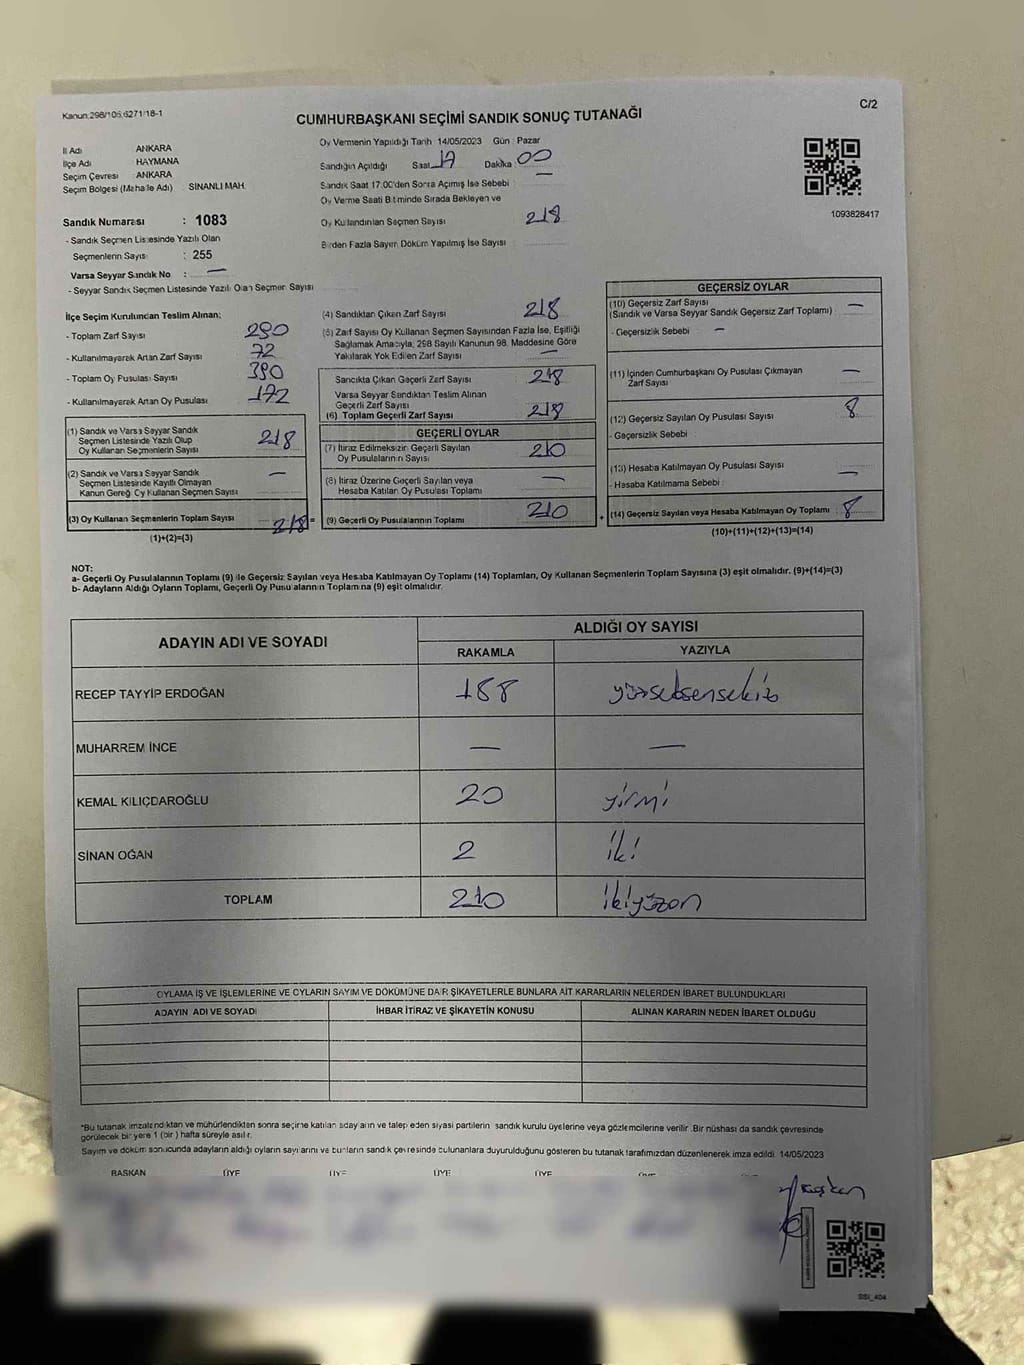 Kanun:298/105,6271/18-1
C/2
CUMHURBAŞKANI SEÇİMİ SANDIK SONUÇ TUTANAĞI
İl Adı ANKARA
İlçe Adı HAYMANA
Seçim Çevresi : ANKARA
Seçim Bölgesi (Mahalle Adı) : SİNANLI MAH.
Sandık Numarası : 1083
- Sandık Seçmen Listesinde Yazılı Olan
Seçmenlerin Sayısı : 255
Varsa Seyyar Sandık No : —
- Seyyar Sandık Seçmen Listesinde Yazılı Olan Seçmen Sayısı
Oy Vermenin Yapıldığı Tarih 14/05/2023 Gün : Pazar
Sandığın Açıldığı Saat 17 Dakika : 00
Sandık Saat 17.00'den Sonra Açılmış İse Sebebi : —
Oy Verme Saati Bitiminde Sırada Bekleyen ve
Oy Kullandırılan Seçmen Sayısı 218
Birden Fazla Sayım Döküm Yapılmış İse Sayısı
1093828417
İlçe Seçim Kurulundan Teslim Alınan:
- Toplam Zarf Sayısı 290
- Kullanılmayarak Artan Zarf Sayısı 72
- Toplam Oy Pusulası Sayısı 390
- Kullanılmayarak Artan Oy Pusulası 172
(1) Sandık ve Varsa Seyyar Sandık
Seçmen Listesinde Yazılı Olup
Oy Kullanan Seçmenlerin Sayısı 218
(2) Sandık ve Varsa Seyyar Sandık
Seçmen Listesinde Kayıtlı Olmayan
Kanun Gereği Oy Kullanan Seçmen Sayısı —
(3) Oy Kullanan Seçmenlerin Toplam Sayısı 218 =
(1)+(2)=(3)
(4) Sandıktan Çıkan Zarf Sayısı 218
(5) Zarf Sayısı Oy Kullanan Seçmen Sayısından Fazla İse, Eşitliği
Sağlamak Amacıyla, 298 Sayılı Kanunun 98. Maddesine Göre
Yakılarak Yok Edilen Zarf Sayısı —
Sandıkta Çıkan Geçerli Zarf Sayısı 218
Varsa Seyyar Sandıktan Teslim Alınan
Geçerli Zarf Sayısı
(6) Toplam Geçerli Zarf Sayısı 218
GEÇERLİ OYLAR
(7) İtiraz Edilmeksizin Geçerli Sayılan
Oy Pusulalarının Sayısı 210
(8) İtiraz Üzerine Geçerli Sayılan veya
Hesaba Katılan Oy Pusulası Toplamı —
(9) Geçerli Oy Pusulalarının Toplamı 210 +
GEÇERSİZ OYLAR
(10) Geçersiz Zarf Sayısı —
(Sandık ve Varsa Seyyar Sandık Geçersiz Zarf Toplamı)
- Geçersizlik Sebebi —
(11) İçinden Cumhurbaşkanı Oy Pusulası Çıkmayan
Zarf Sayısı —
(12) Geçersiz Sayılan Oy Pusulası Sayısı 8
- Geçersizlik Sebebi
(13) Hesaba Katılmayan Oy Pusulası Sayısı —
- Hesaba Katılmama Sebebi :
(14) Geçersiz Sayılan veya Hesaba Katılmayan Oy Toplamı : 8
(10)+(11)+(12)+(13)=(14)
NOT:
a- Geçerli Oy Pusulalarının Toplamı (9) ile Geçersiz Sayılan veya Hesaba Katılmayan Oy Toplamı (14) Toplamları, Oy Kullanan Seçmenlerin Toplam Sayısına (3) eşit olmalıdır. (9)+(14)=(3)
b- Adayların Aldığı Oyların Toplamı, Geçerli Oy Pusulalarının Toplamına (9) eşit olmalıdır.
ADAYIN ADI VE SOYADI ALDIĞI OY SAYISI
RAKAMLA YAZIYLA
RECEP TAYYİP ERDOĞAN 188 yüzseksensekiz
MUHARREM İNCE — —
KEMAL KILIÇDAROĞLU 20 yirmi
SİNAN OĞAN 2 iki
TOPLAM 210 ikiyüzon
OYLAMA İŞ VE İŞLEMLERİNE VE OYLARIN SAYIM VE DÖKÜMÜNE DAİR ŞİKAYETLERLE BUNLARA AİT KARARLARIN NELERDEN İBARET BULUNDUKLARI
ADAYIN ADI VE SOYADI İHBAR İTİRAZ VE ŞİKAYETİN KONUSU ALINAN KARARIN NEDEN İBARET OLDUĞU
*Bu tutanak imzalandıktan ve mühürlendikten sonra seçime katılan adayların ve talep eden siyasi partilerin sandık kurulu üyelerine veya gözlemcilerine verilir. Bir nüshası da sandık çevresinde
görülecek bir yere 1 (bir) hafta süreyle asılır.
Sayım ve döküm sonucunda adayların aldığı oyların sayılarını ve bunların sandık çevresinde bulunanlara duyurulduğunu gösteren bu tutanak tarafımızdan düzenlenerek imza edildi. 14/05/2023
BAŞKAN ÜYE ÜYE ÜYE ÜYE ÜYE
SSI_404